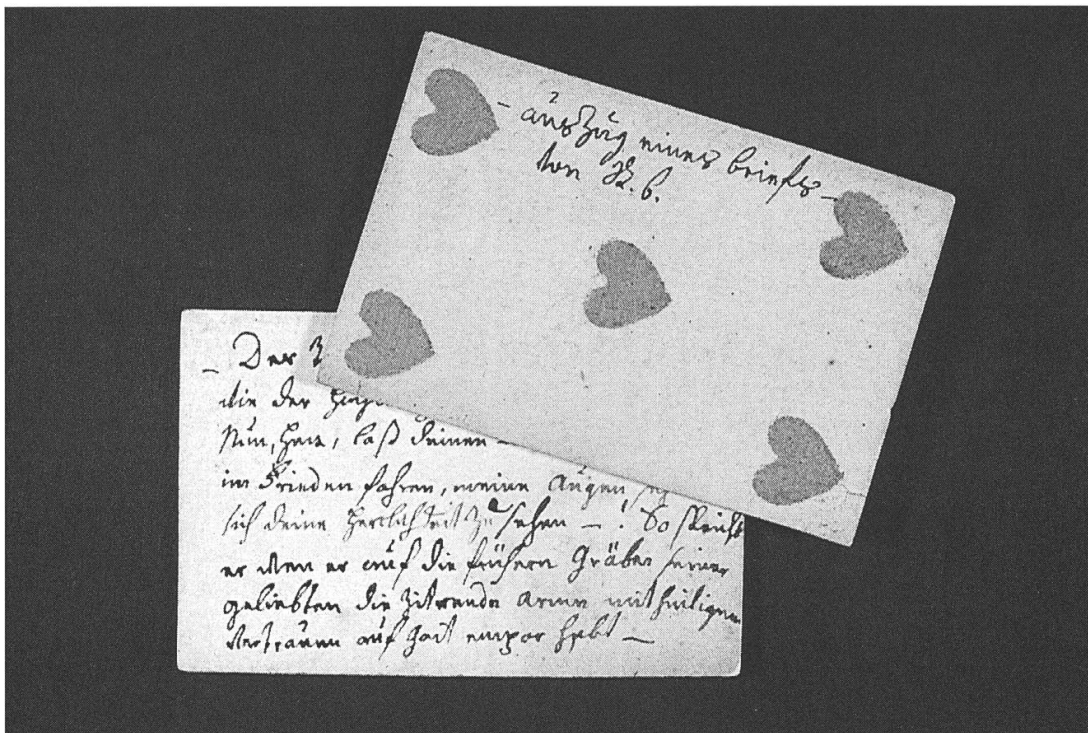 – auszug eines briefs –
von
– Der
wie der
Nun, Herr, laß deinen –
im Frieden fahren, meine augen
sich deine Herrlichkeit zu sehen – ! So spricht
er wen er auf die frühern Gräber seiner
geliebten die zitrende arme mit heiligem
vertrauen auf Gott empor hebt –